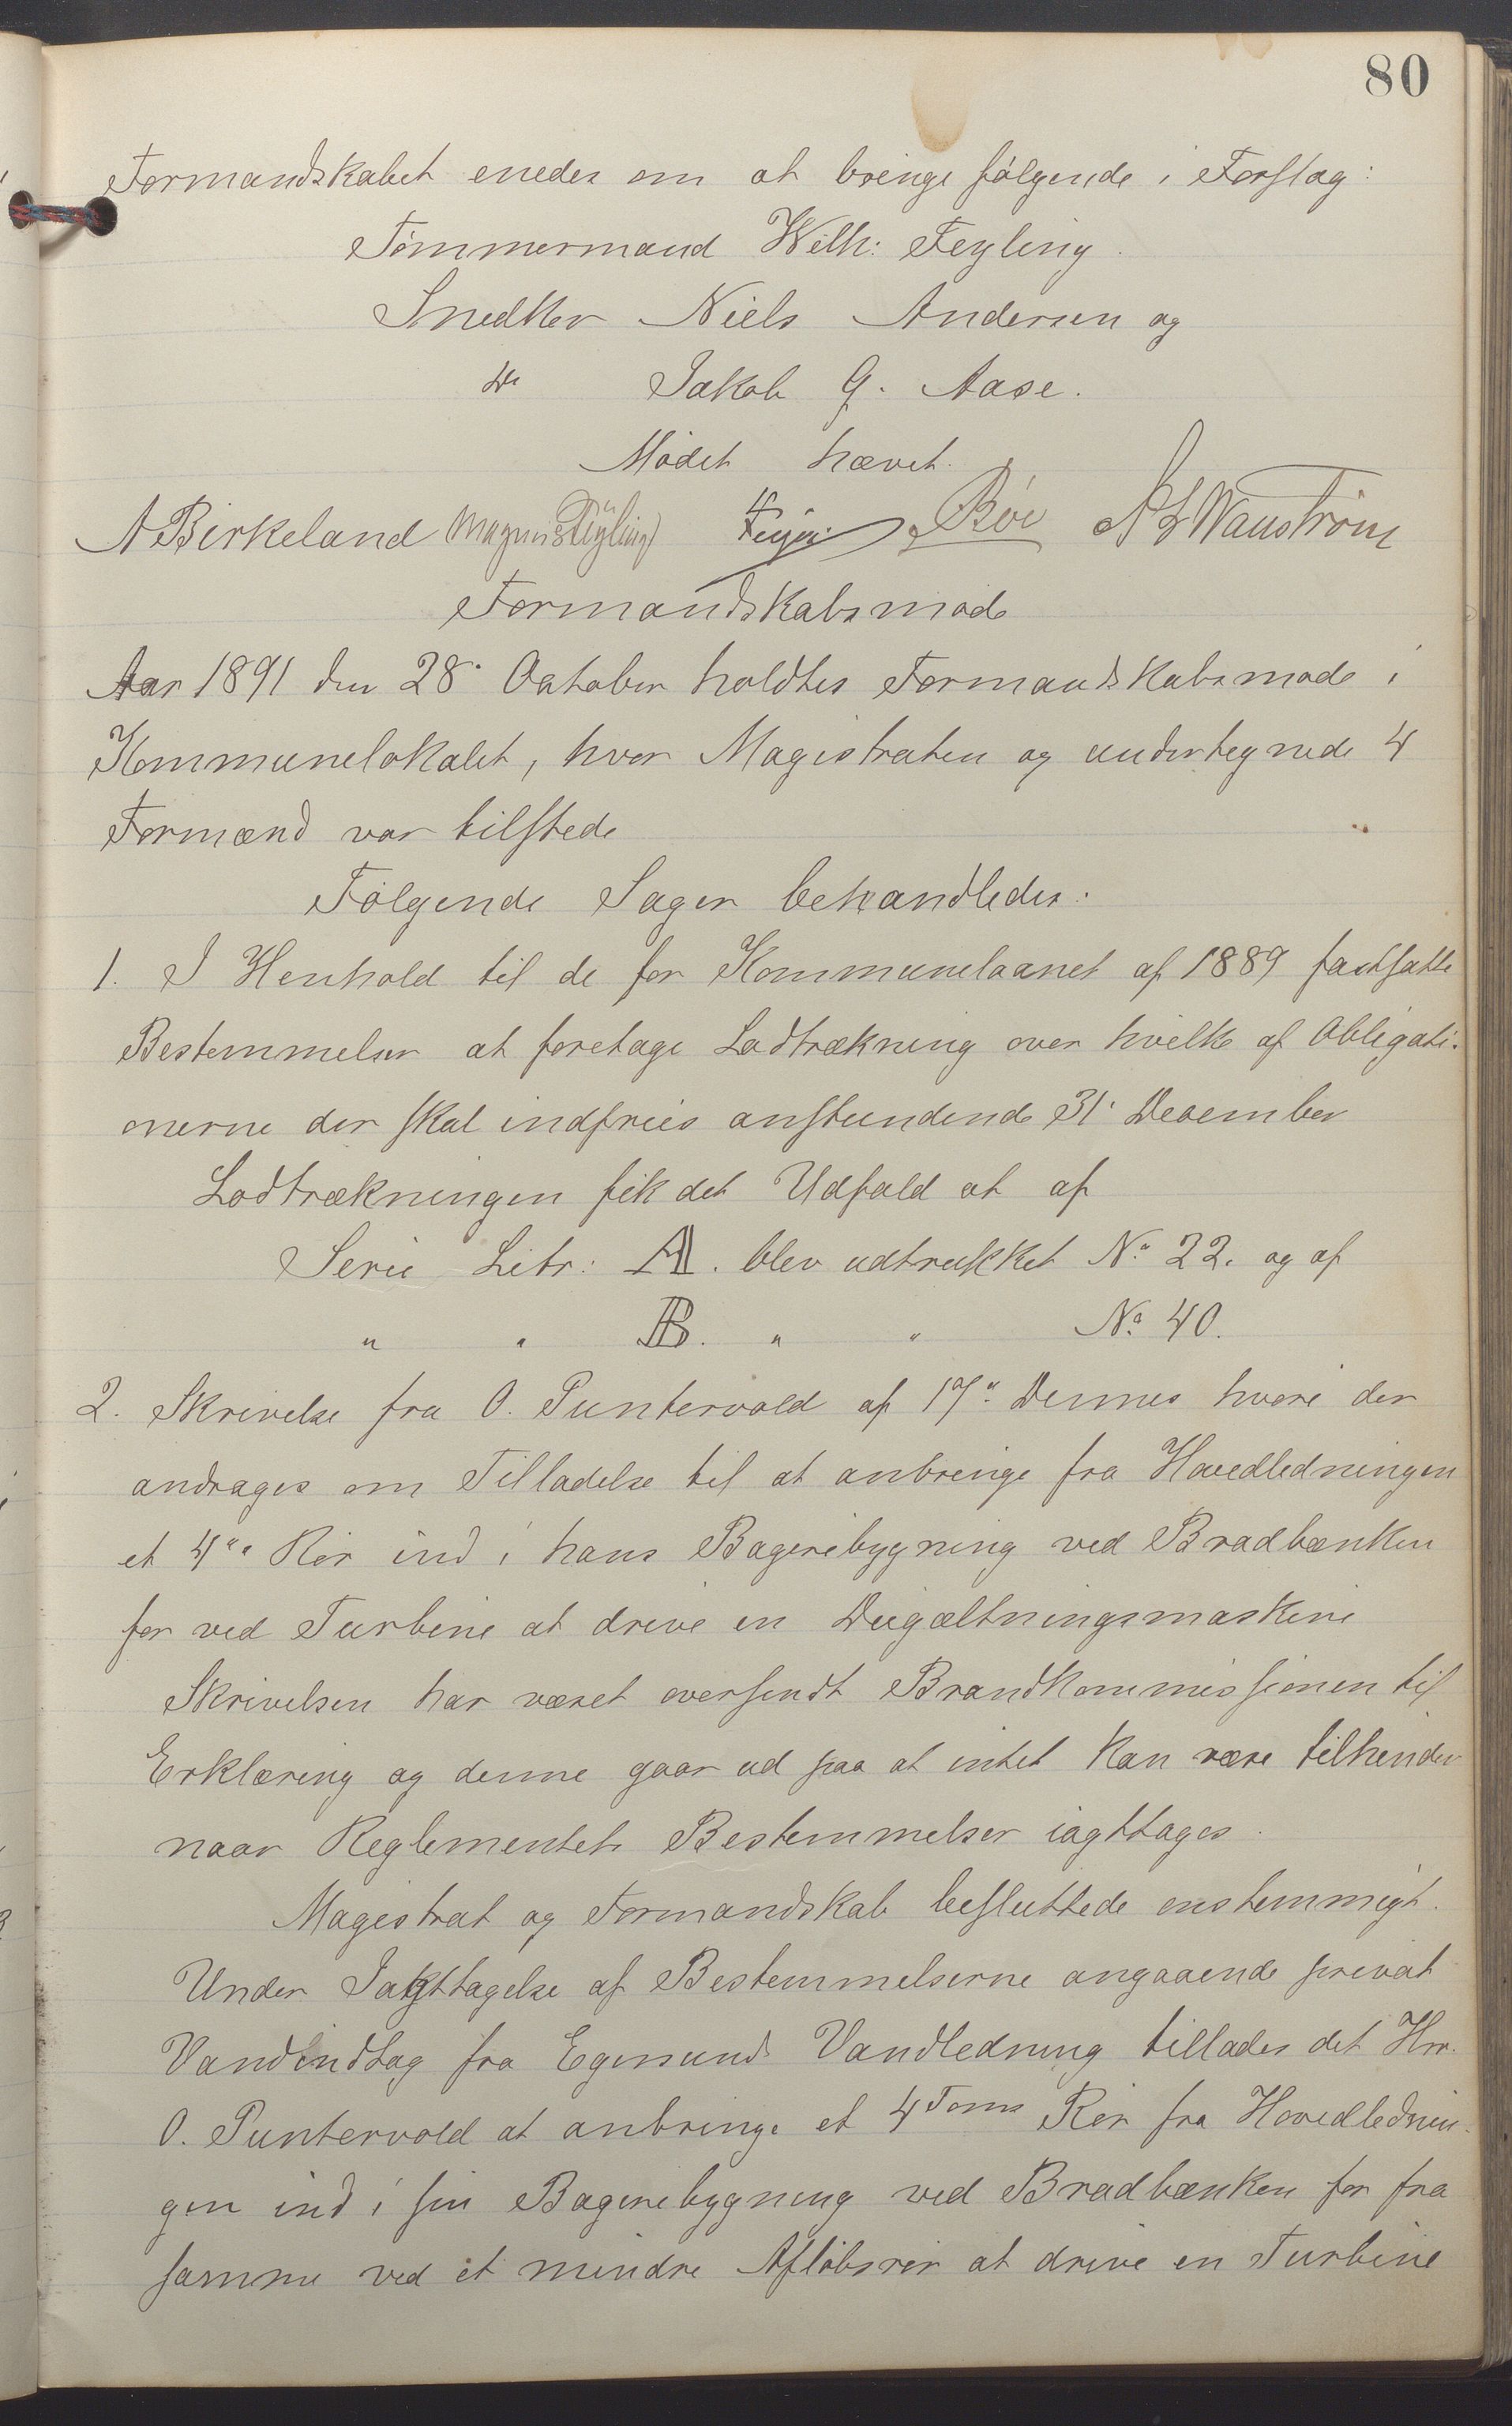 80
Formandskabet enedes om at bringe følgende i Forslag:
Tømmermand Wilh: Feyling.
Snedker Niels Andersen og
Do Jakob G. Aase.
Mødet hævet.
A Birkeland Magnus Feyling Feyer Bøe
Formandskabsmøde
Aar 1891 den 28. October holdtes Formandskabsmøde i
Kommunelokalet, hvor Magistraten og undertegnede 4
Formænd var tilstede
Følgende Sager behandledes.
1. I Henhold til de for Kommunelaanet af 1889 fastsatte
Bestemmelser at foretage Lodtrækning over hvilke af Obligati-
onerne der skal indfries anstundende 31. December
Lodtrækningen fik det Udfald at af
Serie Litr: A. blev udtrukket No 22. og af
" " B. " " No 40.
2. Skrivelse fra O. Puntervold af 17. Dennes hvori der
andrages om Tilladelse til at anbringe fra Hovedledningen
et 4" Rør ind i hans Bageribygning ved Bradbænken
for ved Turbine at drive en Deigæltningsmaskine
Skrivelsen har været oversendt Brandkommissionen til
Erklæring og denne gaar ud paa at intet kan være tilhinder
naar Reglementets Bestemmelser iagttages.
Magistrat og Formandskab besluttede enstemmigt.
Under Iagttagelse af Bestemmelserne angaaende privat
Vandindtag fra Egersunds Vandledning tillades det Hrr.
O. Puntervold at anbringe et 4 Toms Rør fra Hovedlednin-
gen ind i sin Bageribygning ved Bradbænken for fra
samme ved et mindre Afløbsrør at drive en Turbine